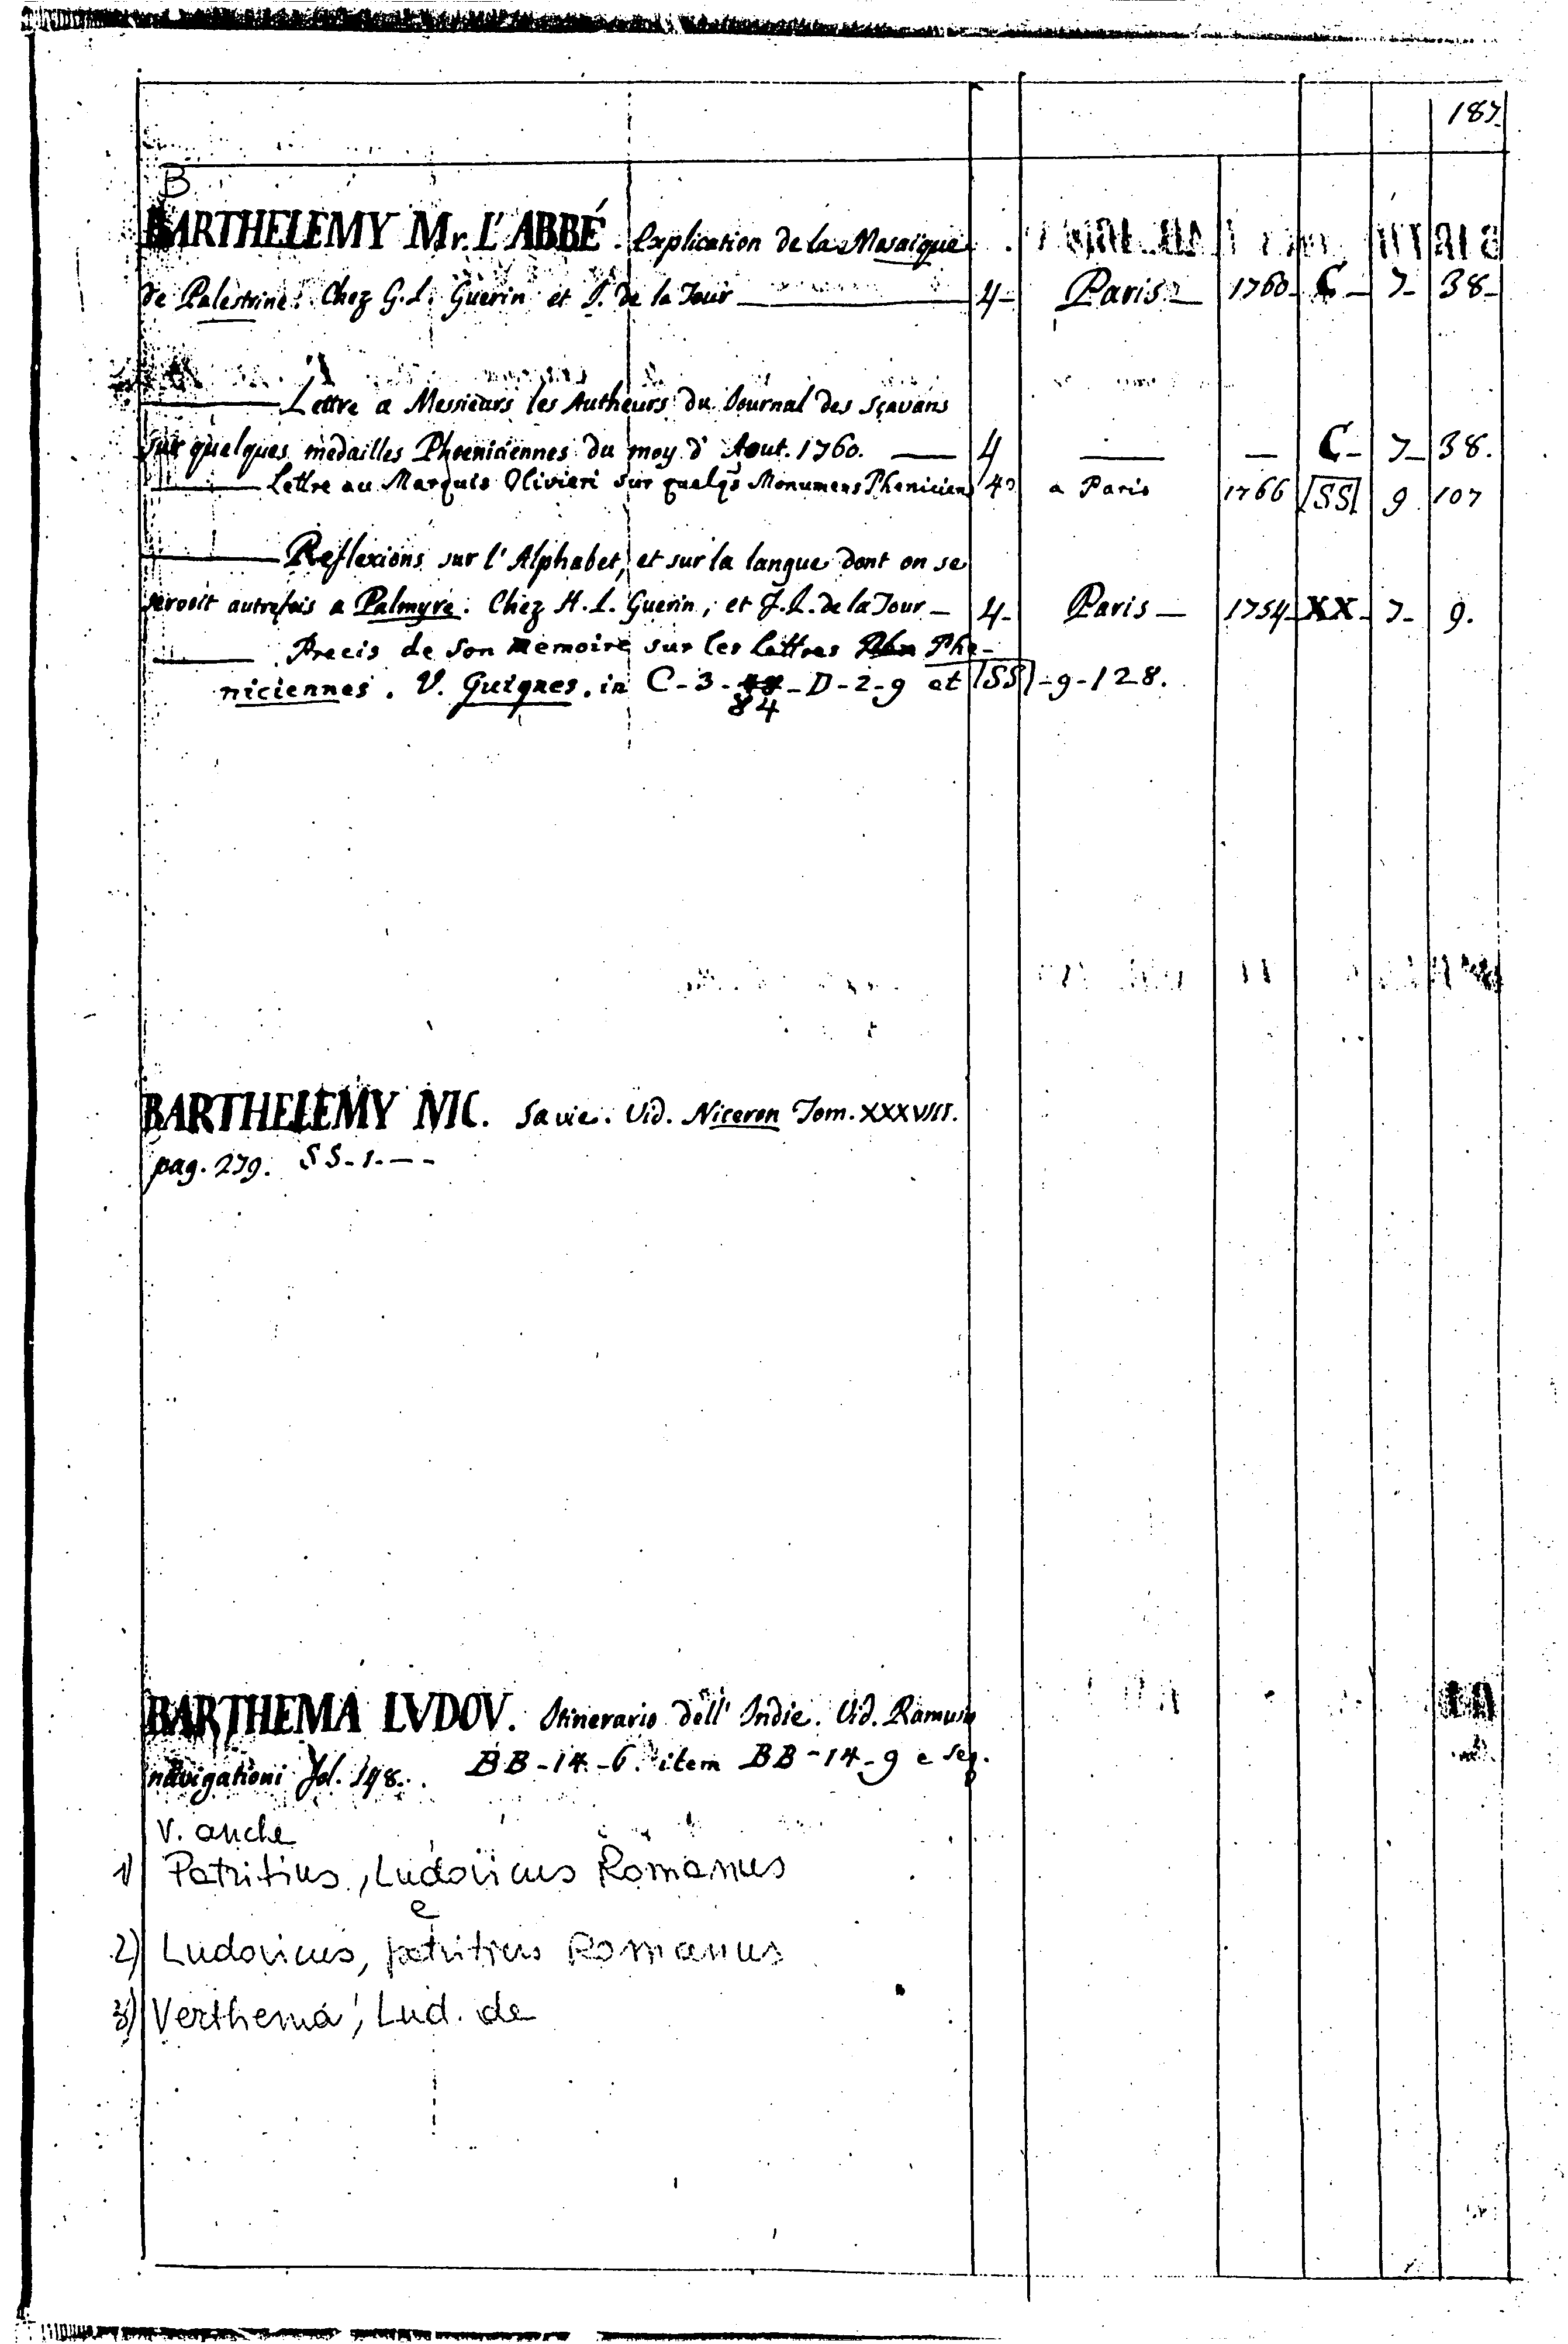 187.
B
BARTHELEMY Mr. L'ABBÉ. Explication de la Mosaique
de Palestrine. Chez G. L. Guerin et J. de la Tour — 4- Paris — 1760- C - 7- 38-
— Lettre a Messieurs les Autheurs du Journal des Sçavans
sur quelques medailles Phoeniciennes du moy d'Aout. 1760. — 4 — — C- 7- 38.
— Lettre au Marquis Olivieri sur quelqs Monumens Phenicien 4° a Paris 1766 [SS] 9 107
— Reflexions sur l'Alphabet, et sur la langue dont on se
servoit autrefois a Palmyre. Chez H. L. Guerin, et J. L. de la Tour — 4- Paris — 1754- XX- 7- 9.
— Precis de son memoire sur les lettres Phe-
niciennes. V. Guignes. in C-3-84-D-2-9 et [SS]-9-128.
BARTHELEMY NIC. Sa vie. Vid. Niceron Tom. XXXVIII.
pag. 279. SS-1.--
BARTHEMA LVDOV. Itinerario dell' Indie. Vid. Ramusio
navigationi fol. 148. BB-14-6. item BB-14-9 e seq.
V. anche
1) Patritius, Ludovicus Romanus
e
2) Ludovicus, patritius Romanus
3) Verthema, Lud. de